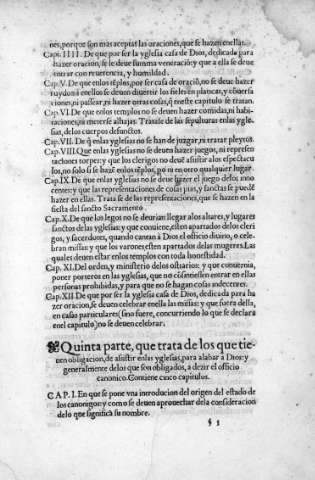 nes, porque son mas aceptas las oraciones, que se hazen enellas.
Capi. IIII. De que por ser la yglesia casa de Dios, dedicada para
hazer oracion, se le deue summa veneracion: y que a ella se deue
entrar con reuerencia, y humildad.
Cap. V. De que enlos tẽplos, por ser casa de oraciõ, no se deue hazer
ruydo: ni enellos se deuen diuertir los fieles en platicas, y cõuersa
ciones, ni passear, ni hazer otras cosas, q̃ neste capitulo se tratan.
Cap. VI. De que enlos templos no se deuen hazer comidas, ni habi-
taciones, ni meterse alhajas. Tratase de las sepulturas enlas ygle-
sias, de los cuerpos defunctos.
Cap. VII. De q̃ enlas yglesias no se han de juzgar, ni tratar pleytos.
Cap. VIII. Que enlas yglesias no se deuen hazer juegos, ni represen-
taciones torpes: y que los clerigos no deuẽ assistir a los espectacu
los, no solo si se hazẽ enlos tẽplos, pero ni en otro qualquier lugar.
Cap. IX. De que enlas yglesias no se deue tener el juego delos inno
centes: y que las representaciones de cosas pias, y sanctas se puedẽ
hazer en ellas. Trata se de las representaciones, que se hazen en la
fiesta del sancto Sacramento.
Cap. X. De que los legos no se deurian llegar a los altares, y lugares
sanctos de las yglesias: y que conuiene, esten apartados delos cleri
gos, y sacerdotes, quando cantan à Dios el officio diuino, o cele-
bran missas: y que los varones, esten apartados delas mugeres. Las
quales deuen estar enlos templos con toda honestidad.
Cap. XI. Del orden, y ministerio delos ostiarios: y que conuernia,
poner porteros en las yglesias, que no cõsintiessen entrar en ellas
personas prohibidas, y para que no se hagan cosas indecentes.
Cap. XII De que por ser la yglesia casa de Dios, dedicada para ha
zer oracion, se deuen celebrar enella las missas: y que fuera della,
en casas particulares (sino fuere, concurriendo lo que se declara
enel capitulo) no se deuen celebrar.
Quinta parte, que trata de los que tie-
nen obligacion, de assistir enlas yglesias, para alabar a Dios: y
generalmente delos que son obligados, a dezir el officio
canonico. Contiene cinco capitulos.
CAP. I. En que se pone vna introducion del origen del estado de
los canonigos: y como se deuen aprouechar dela consideracion
delo que significa su nombre.
§ 5